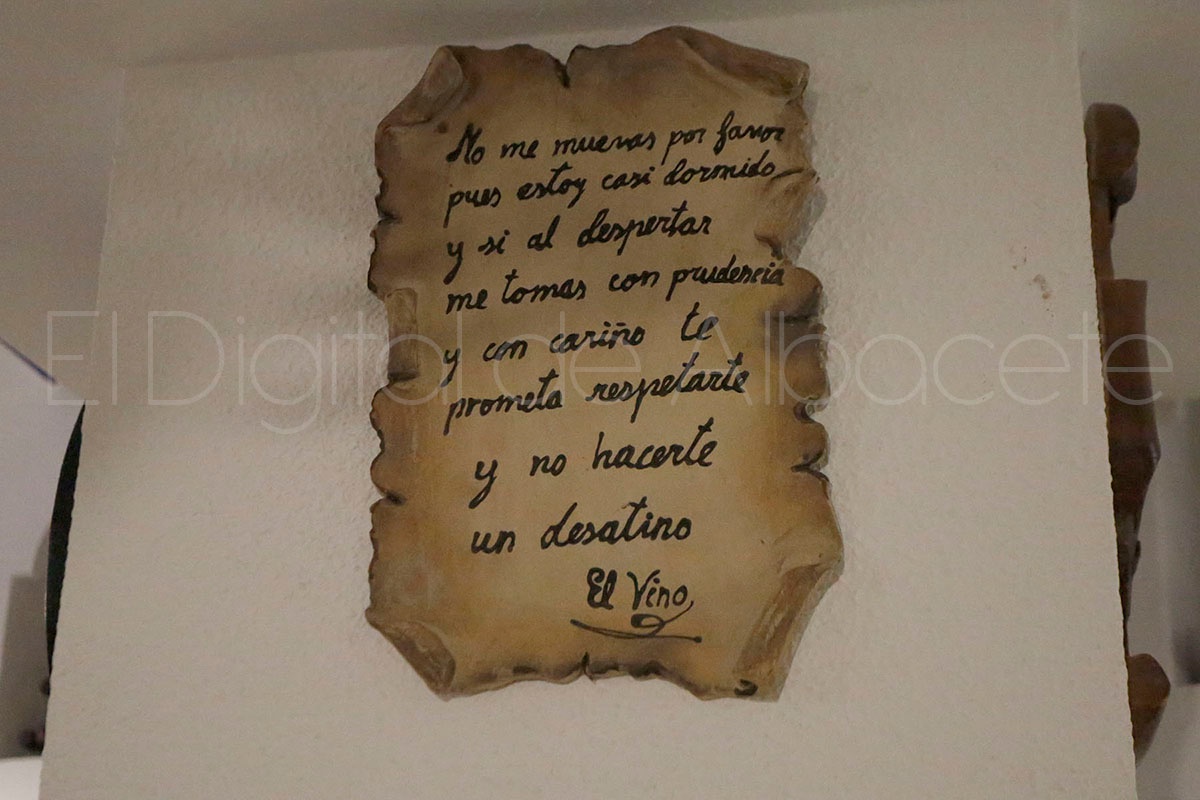 No me muevas por favor
pues estoy casi dormido
y si al despertar
me tomas con prudencia
y con cariño te
prometa respetarte
y no hacerte
un desatino
El Vino
El Digital de Albacete